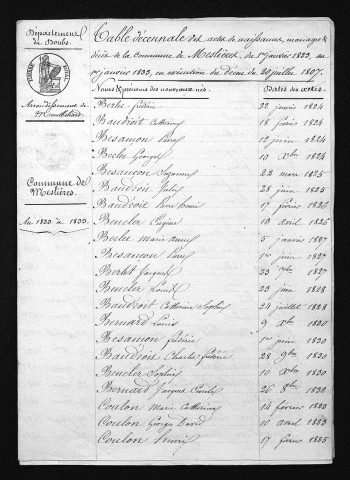 Département
du Doubs.
Arrondissement de
Montbéliard
Commune de
Meslières.
An 1823 à 1833.
Table décennale des actes de naissances, mariages &
décès de la commune de Meslières, du 1er janvier 1823, au
1er janvier 1833, en exécution du décret du 20 juillet 1807.
Noms & prénoms des nouveaux nés. Dates des actes.
Berlet 22 janvier 1824
Baudroit Catherine 18 février 1824
Besançon Pierre 12 juin 1824
Becler George 10 Xbre 1824
Besançon Suzanne 22 mars 1825
Baudroit Julie 28 juin 1825
Baudroit Pierre Louis 17 février 1826
Beucler Eugène 13 avril 1826
Berlet marie anne 5 janvier 1827
Besançon 1er juin 1827
Berlet Jacques 23 1827
Beucler Louis 23 juin 1828
Baudroit Catherine Sophie 24 juillet 1828
Bernard Louis 9 Xbre 1830
Besançon frédéric 1er juin 1830
Baudroit Charles frédéric 28 9bre 1830
Beucler Sophie 10 Xbre 1830
Bernard Jacques Emile 26 8bre 1832
Coulon Marie Catherine 14 février 1823
Coulon George David 10 avril 1823
Coulon 17 février 1825